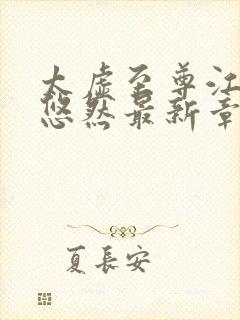 太虚至尊江
悠然最新章
夏長安